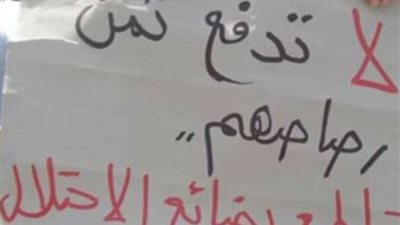 لا تدفع ثمن
رصاصهم..
بضائع الاحتلال